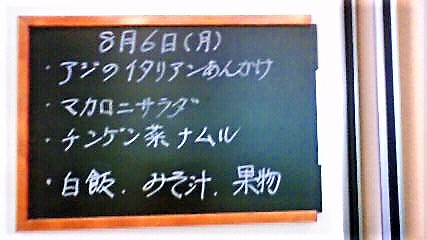 8月6日(月)
・アジのイタリアンあんかけ
・マカロニサラダ
・チンゲン菜ナムル
・白飯．みそ汁．果物